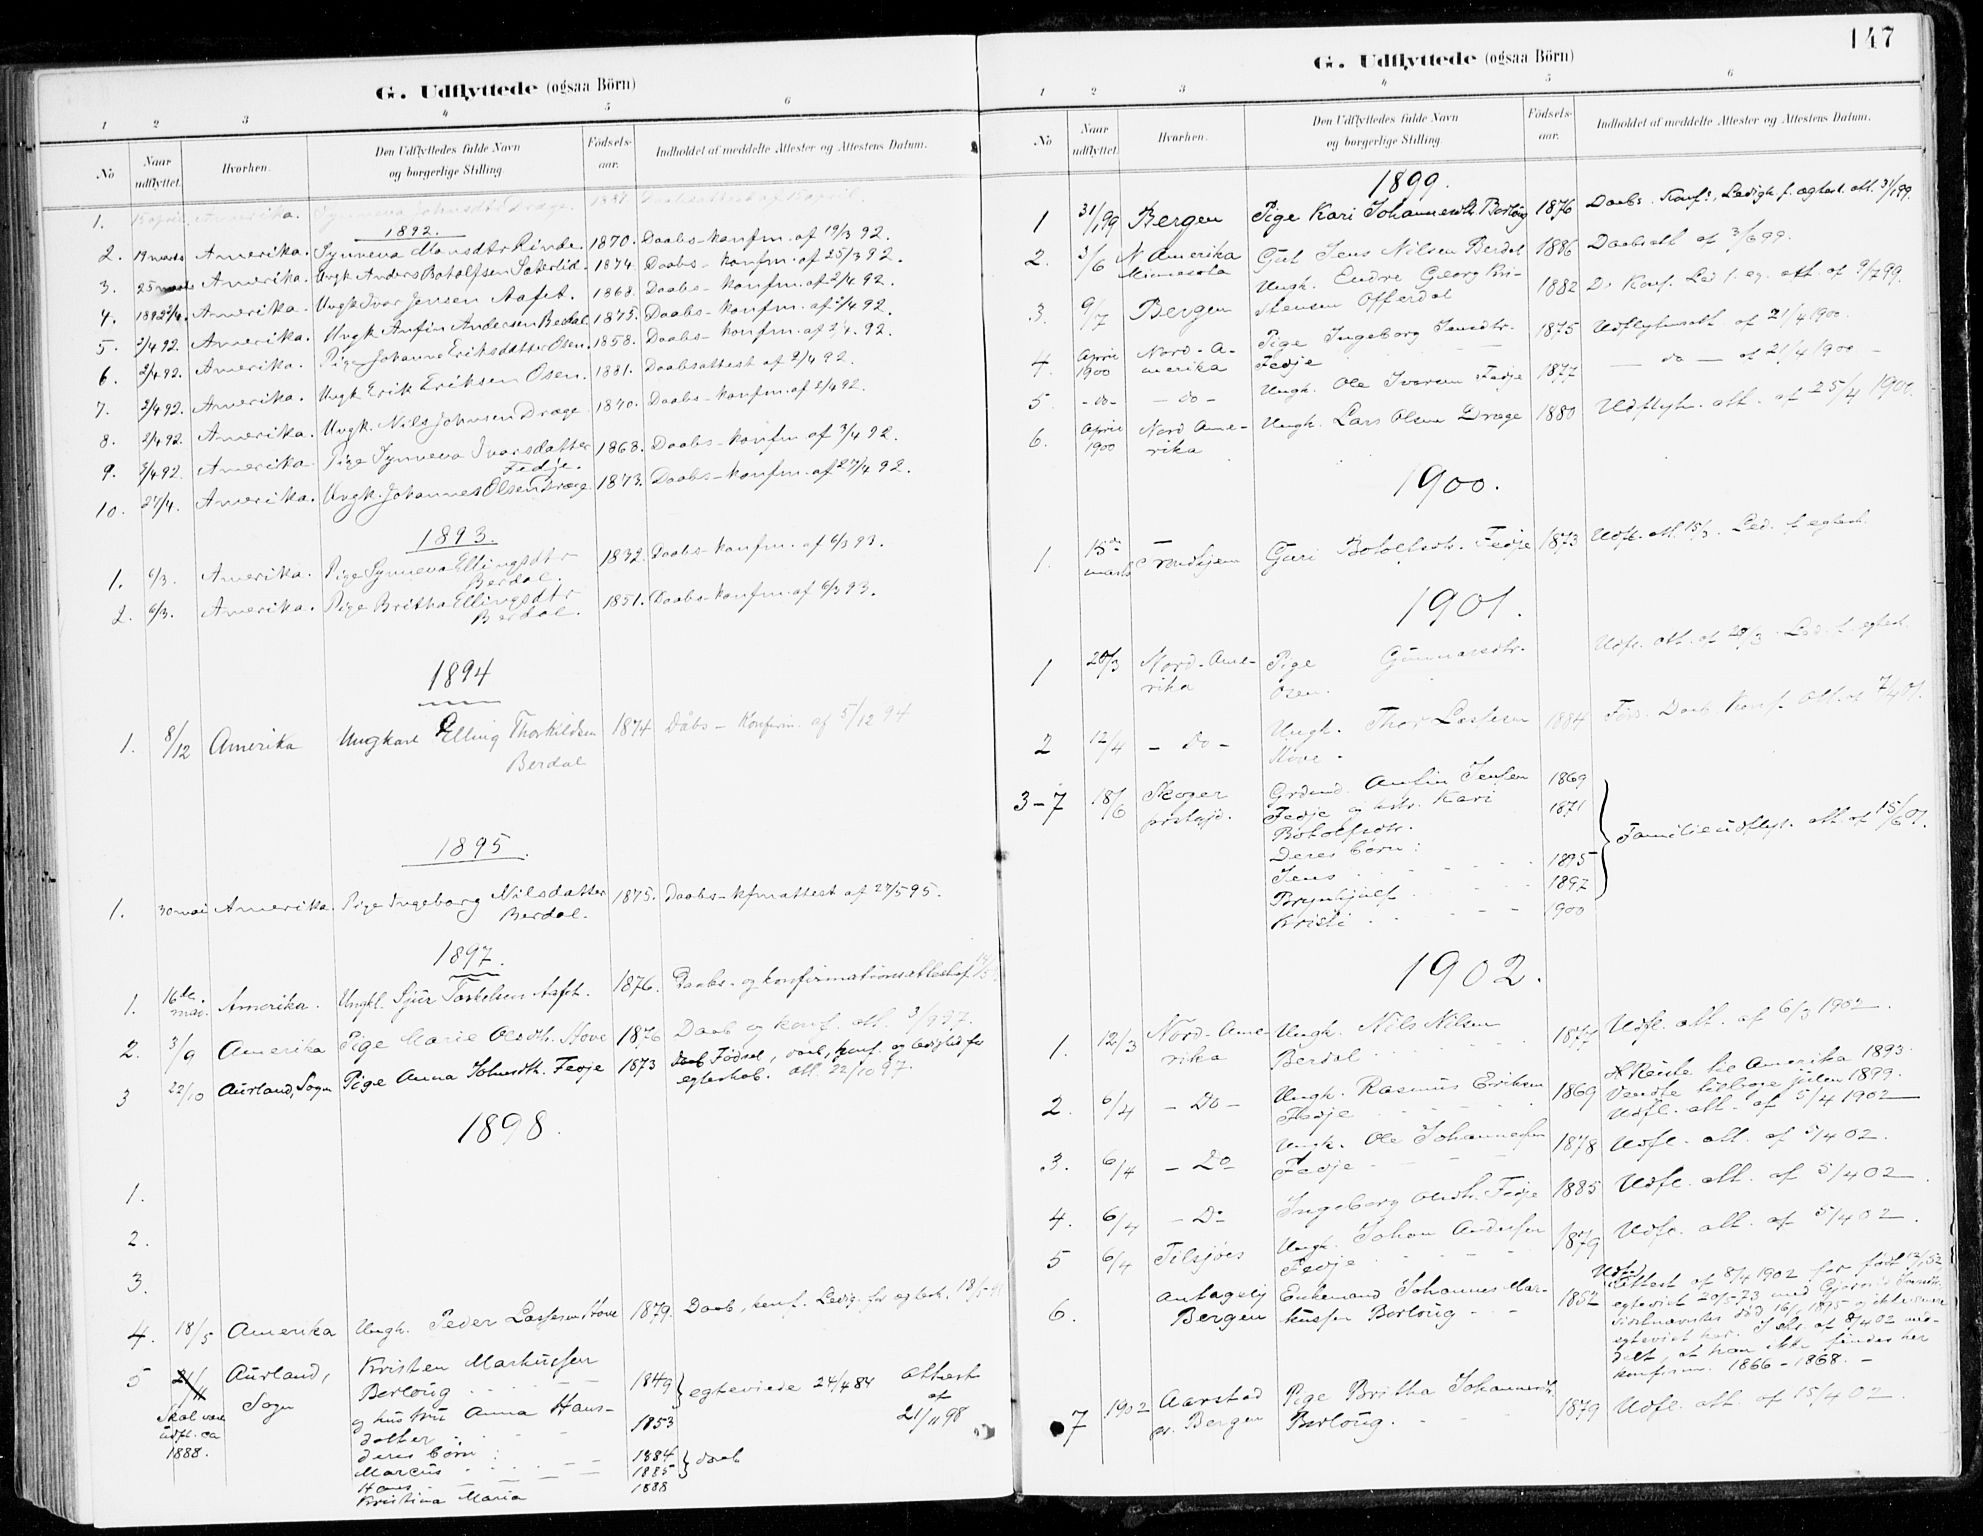 G. Udflyttede (ogsaa Börn)
1 2 3 4 5 6
No Naar udflyttet. Hvorhen. Den Udflyttedes fulde Navn og borgerlige Stilling Fødsels-aar. Indholdet af meddelte Attester og Attestens Datum.
1. 15 april Amerika. Synneva Johnsdtr Dræge. 1887 Daabsattest af 15 april.
1892.
2. 19 marts Amerika. Synneva Monsdtr Rinde. 1870. Daabs-konfm. af 19/3 92.
3. 25 marts Amerika. Ungk Anders Botolfsen Sæterlid. 1874. Daabs-konfm. af 25/3 92.
4. 1892 2/4. Amerika. Ungk Ivar Jensen Aafet. 1868. Daabs-konfm. af 2/4 92.
5. 2/4 92. Amerika. Ungk Anfin Andersen Berdal. 1875. Daabs-konfm. af 2/4 92.
6. 2/4 92. Amerika. Pige Johanne Eriksdatter Osen. 1858. Daabs-konfm. af 2/4 92.
7. 2/4 92. Amerika. Ungk Erik Eriksen Osen. 1881. Daabsattest af 2/4 92.
8. 2/4 92. Amerika. Ungk. Nils Johnsen Dræge 1870. Daabs-konfm. af 2/4 92.
9. 3/4 92. Amerika. Pige Synneva Ivarsdatter 1868. Daabs-konfm. af 3/4 92.
Fedje.
10. 27/4. Amerika. Ungk. Johannes Olsen Dræge 1873. Daabs-konfm. af 27/4 92.
1893.
1. 6/3. Amerika. Pige Synneva Ellingsdtr 1832. Daabs-konfm. af 6/3 93.
Berdal.
2. 6/3. Amerika. Pige Britha Ellingsdtr 1851. Daabs-konfm. af 6/3 93.
Berdal.
1894
1. 8/12 Amerika Ungkarl Elling Thorkildsen 1874 Dåbs-Konfirm. af 5/12 94
Berdal
1895.
1. 30 mai Amerika. Pige Ingeborg Nilsdatter 1875. Daabs-kfmattest af 27/5 95.
Berdal.
1897.
1. 16de mai. Amerika. Ungkl. Sjur Torkelsen Aafet. 1876. Daabs- og konfirmationsattest af
2. 3/9 Amerika Pige Marie Olsdtr. Hove 1876 Daab og konf. att. 3/9 97.
3 22/10 Aurland, Sogn Pige Anna Johnsdtr. Fedje 1873 Fødsel, daab, konf. og ledighed for
egteskab. att. 22/10 97.
1898.
1.
2.
3.
4. 18/5 Amerika Ungk. Peder Lassesen Hove 1879. Daab, konf. Ledig. for egtesk. 18/5
5 21/11 Aurland, Kristen Markussen
Sogn Berloug 1849 egteviede 24/4 84 Attest
Skal være og hustru Anna Hans- af
udfl. ca datter 1853 21/11 98
1888. deres børn:
Marcus 1884 daab
Hans 1885
Kristina Maria 1888
147
G. Udflyttede (ogsaa Börn)
1 2 3 4 5 6
No Naar udflyttet. Hvorhen. Den Udflyttedes fulde Navn og borgerlige Stilling. Fødsels-aar. Indholdet af meddelte Attester og Attestens Datum.
1899.
1 31/1 99 Bergen Pige Kari Johannesdtr. Berloug 1876 Daabs. Konf., Ledigh. f. egtesk. att. 31/1 99.
2. 3/6 N. Amerika Gut Jens Nilsen Berdal 1886 Daabsatt af 3/6 99.
Minnesota
3. 9/7 Bergen Ungk. Endre Georg Kri- 1882 D. Konf. Led. f. eg. att. af 9/7 99.
stensen Offerdal
4. April 1900 Nord-A- Pige Ingeborg Jensdtr. 1875 Udflytningsatt. af 21/4 1900.
merika Fedje
5. -do- -do- Ungk. Ole Ivarsen Fedje 1877 -do- af 21/4 1900
6. April 1900 Nord Ame- Ungk. Lars Olsen Dræge 1880 Udflytn. att. af 25/4 1900.
rika
1900.
1. 15de marts Trondhjem Guri Botolfsdtr. Fedje 1873 Udfl. att. 15/3. Led. f. egtesk.
1901.
1 28/3 Nord-Ame- Pige Gunnarsdtr. Udfl. att. af 28/3. Led. f. egtesk.
rika Osen.
2 12/4 -Do- Ungk. Thor Lassesen 1884 Føds. Daab. Konf. att. af 7/4 01.
Hove.
3-7 18/6 Skoger Grdmd. Anfin Jensen 1869
prstgjd. Fedje og hstr. Kari 1871
Botolfsdtr. Familieudflyt. att. af 15/6 01.
Deres børn:
Jens 1895
Brynhjulf 1897
Kristi 1900
1902.
1. 12/3 Nord-Ame- Ungk. Nils Nilsen 1877 Udfl. att. af 6/3 1902.
rika Berdal
2. 6/4 -Do- Ungk. Rasmus Eriksen 1869 Reiste til Amerika 1893.
Fedje Vendte tilbage julen 1899.
Udfl. att. af 5/4 1902
3. 6/4 -Do Ungk. Ole Johannesen 1878 Udfl. att. af 5/4 02.
Fedje
4. 6/4 -Do Ingeborg Olsdtr. Fedje 1885 Udfl. att. af 5/4 02
5 6/4 Tilsjøes Ungk. Johan Andersen 1879 Udfl. att. af 5/4 02.
Fedje
6. Antagelig Enkemand Johannes Mar- 1852 Attest af 8/4 1902 for født
Bergen kussen Berloug egteviet 20/5-73 med
død 16/1 1895 og ikke senere
egteviet her. af 8/4 02 med-
delt, at han ikke findes her
konfirm. 1866-1868.
7 1902 Aarstad Pige Britha Johannesdtr. 1879 Udfl. att. af 15/4 02.
pr. Bergen Berloug.